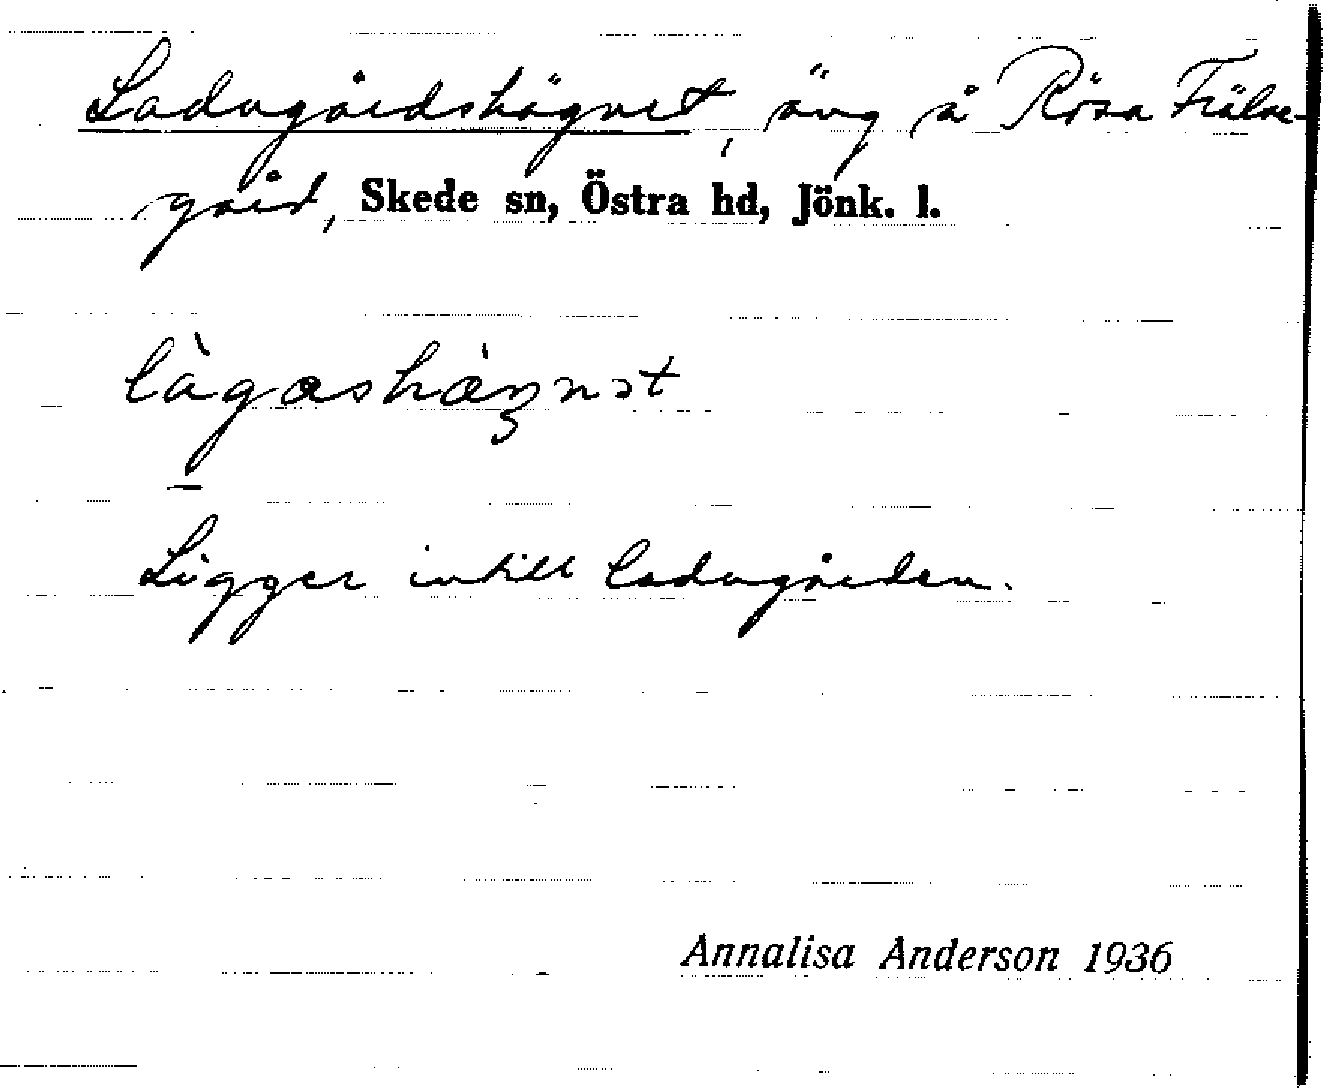 Ladugårdshägnet, äng å Rösa Frälse-
gård, Skede sn, Östra hd, Jönk. l.
làgashæ̀ŋnət
Ligger intill ladugården.
Annalisa Anderson 1936